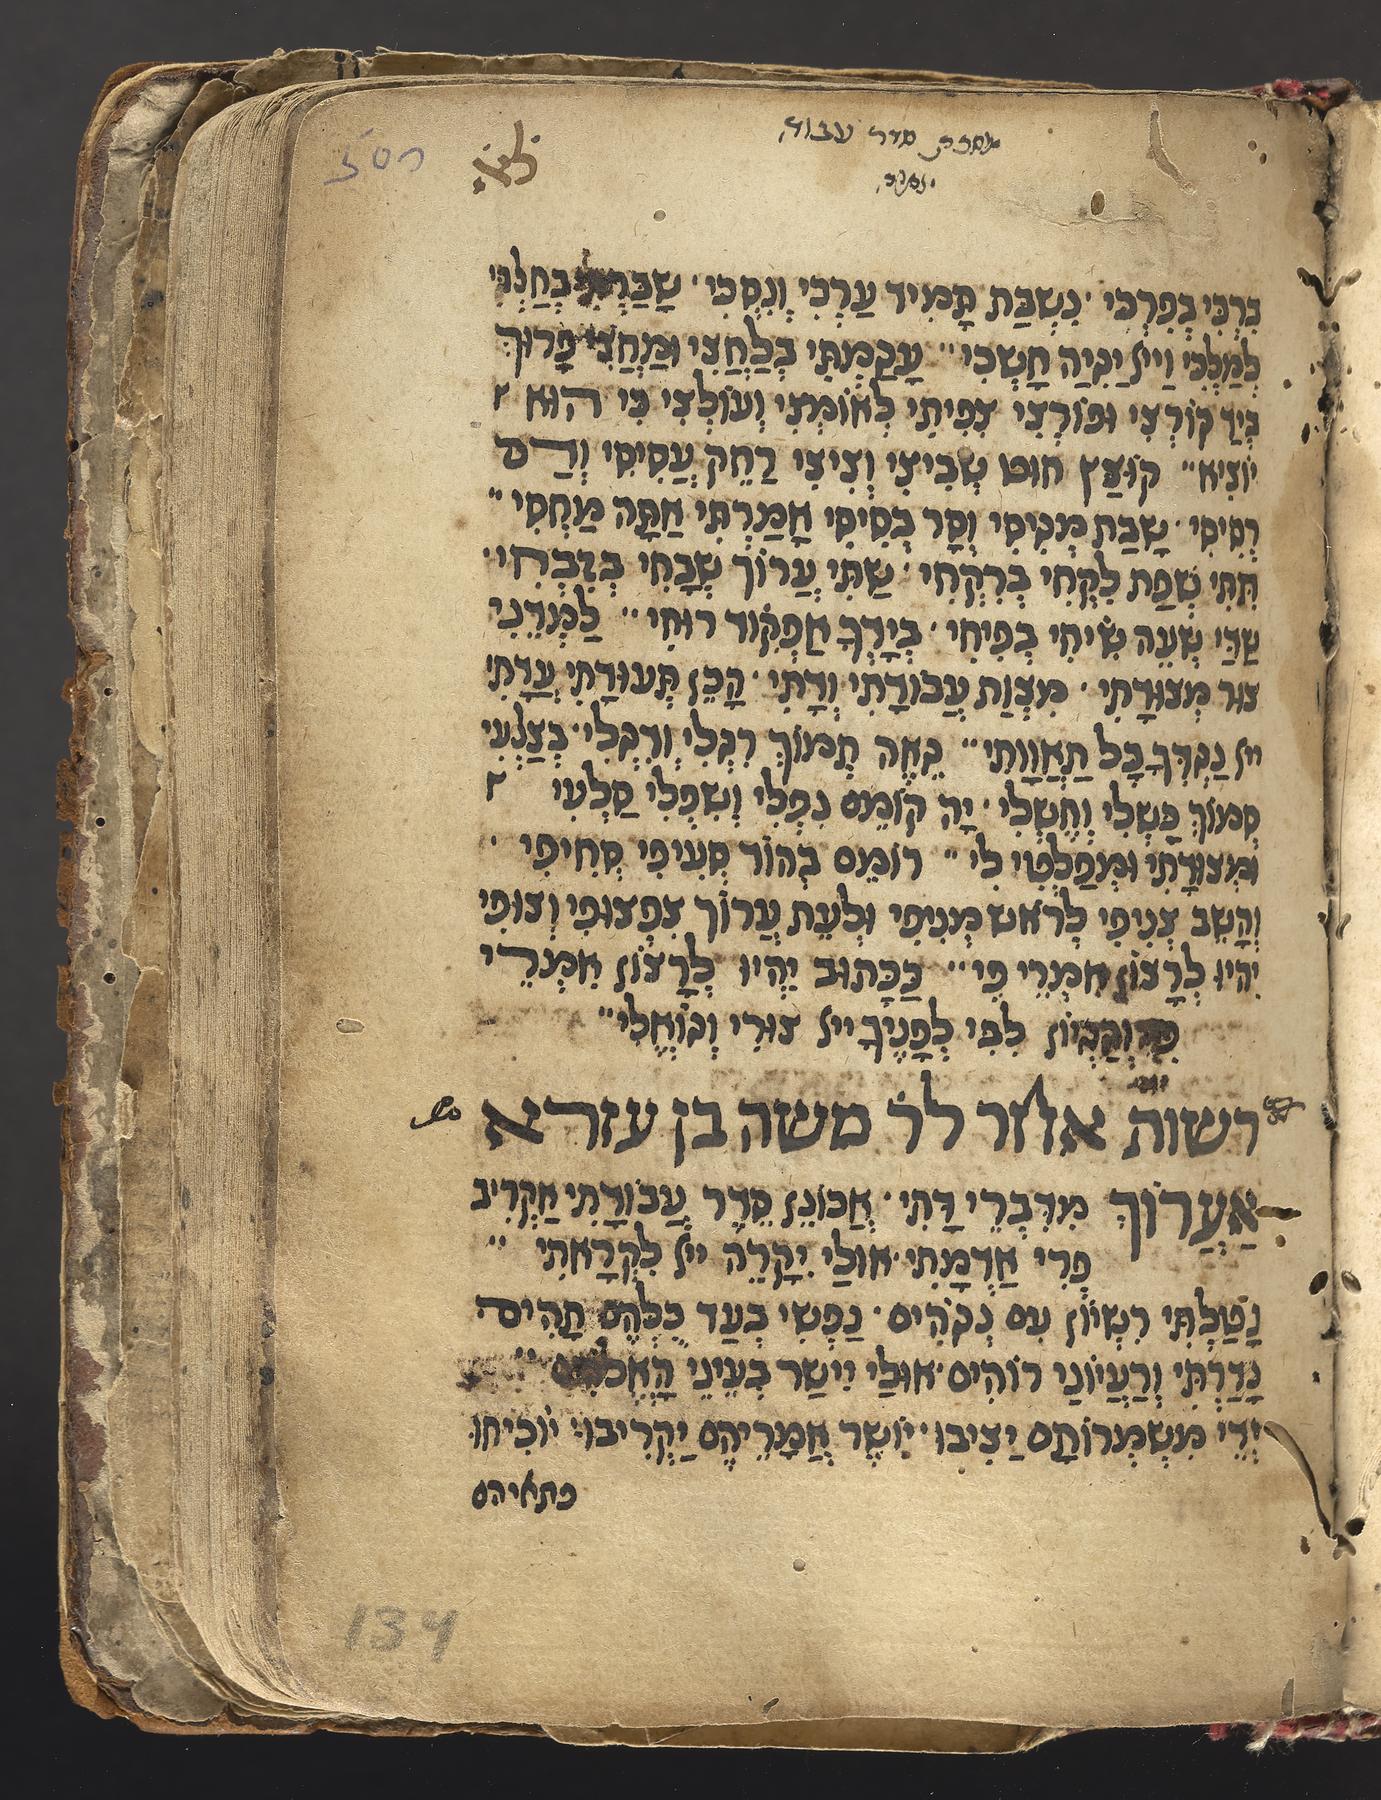 סדר עבודה
בִּרְכִּי בְּפִרְכִּי · נִשְׁבַּת תָּמִיד עַרְכִּי וְנִסְכִּי · בְּחַלְכִּי
לְמַלְכִּי וַייָ יַגִּיהַּ חָשְׁכִּי ״ בְּלַחֲצִי וּמַחֲצִי פָּרוּךְ
בְּיַד קוֹרְצִי וּפוֹרְצִי צִפִּיתִי לְאוֹמְצִי וְעוֹלְצִי כִּי הוּא
יוֹצִיא ״ קוּצַּץ חוּט שְׁבִיצִי וְצִיצִי רַחֵק עֲסִיסִי וְרַם
רְסִיסִי · שָׁבַת מְכִיסִי וְסָר בְּסִיסִי אָמַרְתִּי אַתָּה מַחְסִי ״
תִּתִּי שְׂפַת לִקְחִי בְּרִקְחִי · שַׁתִּי עֲרוֹךְ שְׁבָחִי בְּזִבְחִי ·
שַׁדַּי שְׁעֵה שִׂיחִי בְּפִיחִי · בְּיָדְךָ אַפְקִיד רוּחִי ״ לַמְּדֵנִי
צוּר מְצוּדָתִי · מִצְוַת עֲבוֹדָתִי וְדָתִי · הָכֵן תְּעוּדָתִי עֲדָתִי
ייָ נֶגְדְּךָ כָּל תַאֲוָתִי ״ גֵאֶה תְּמוֹךְ רִגְלִי וְדִגְלִי · בְּצַלְעִי
סְמוֹךְ כָּשְׁלִי וְחָשְׁלִי · יָהּ קוֹמֵם נִפְלִי וְשִׁפְלִי סַלְעִי
וּמְצוּדָתִי וּמְפַלְטִי לִי ״ רוֹמֵם בְּהוֹד סְעִיפִי סְחִיפִי ·
וְהָשֵׁב צְנִיפִי לְרֹאשׁ מְנִיפִי וּלְעֵת עֲרוֹךְ צִפְצוּפִי וְצוּפִי
יִהְיוּ לְרָצוֹן אִמְרֵי פִי ״ כַּכָּתוּב יִהְיוּ לְרָצוֹן אִמְרֵי
פִי וְהֶגְיוֹן לִבִּי לְפָנֶיךָ ייָ צוּרִי וְגוֹאֲלִי ״
רשות אחר לר׳ משה בן עזרא
אַעֲרוֹךְ מִדְבְּרֵי דָּתִי · אֲכוֹנֵן סֵדֶר עֲבוֹדָתִי אַקְרִיב
פְּרִי אַדְמָתִי · אוּלַי יִקָּרֵה ייָ לִקְרָאתִי ״
נָטַלְתִּי רִשְׁיוֹן עִם נְגֹהִים · נַפְשִׁי בְּעַד כֻּלְּהֶם תָּהִים
נָדַרְתִּי וְרַעֲיוֹנַי רוֹהִים · אוּלַי יִישַׁר בְּעֵינֵי הָאֱלֹהִים ״
יְדֵי מִשְׁמְרוֹתָם יַצִּיבוּ · יוֹשֶׁר אֲמָרֵיהֶם יַקְרִיבוּ יוֹכִיחוּ
פתאיהם
134